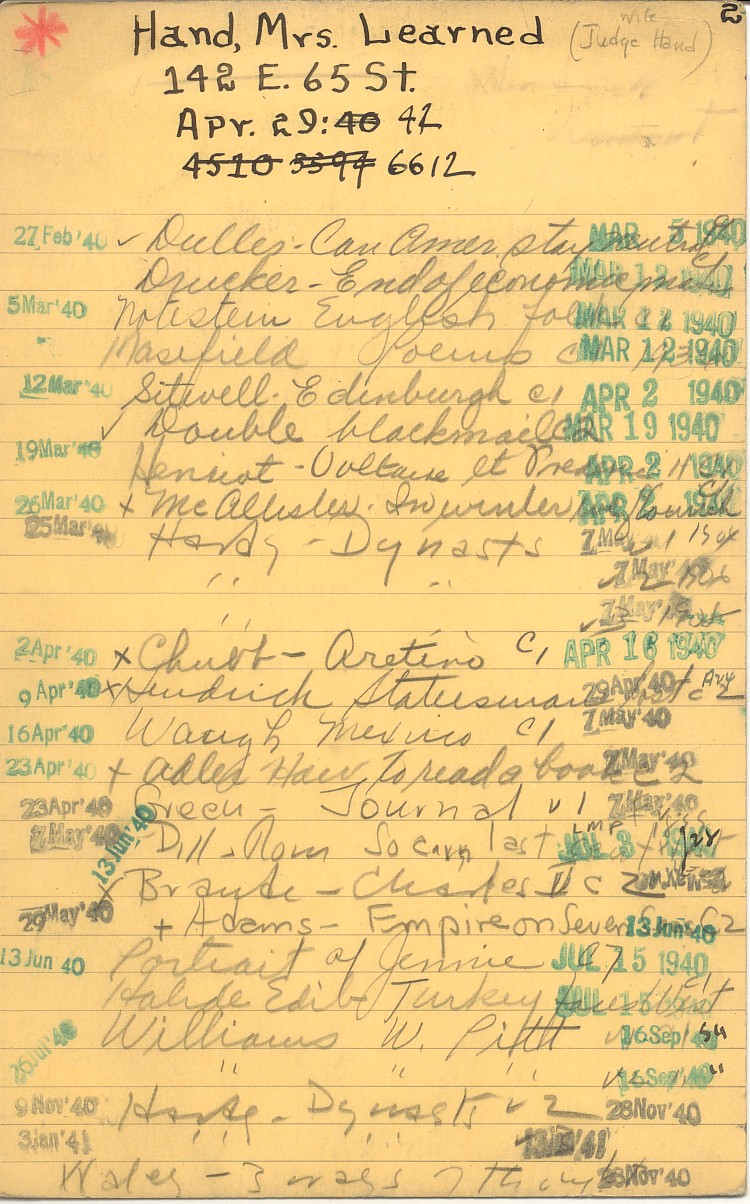 2
Hand, Mrs. Learned (wife Judge Hand)
142 E. 65 St.
Apr. 29: 40 42
4510 3394 6612
27 Feb '40 ✓ Dulles - Can Amer. stay neutral MAR 5 1940
Drucker - End of economic man MAR 12 1940
5 Mar '40 Notestein English folk MAR 12 1940
" Masefield Poems MAR 12 1940
12 Mar '40 Sitwell - Edinburgh c1 APR 2 1940
✓ Double blackmail c2 MAR 19 1940
19 Mar '40 Henriot - Voltaire et APR 2 1940
26 Mar '40 x McAllister - In winter APR 2 1940
25 Mar '40 Hardy - Dynasts 7 May v1 1904
" " 7 May '40 v2 1906
" 7 May '40 v3
2 Apr '40 x Chubb - Aretino c1 APR 16 1940
9 Apr '40 x Hendrick Statesmen 29 Apr '40 c2
16 Apr '40 Waugh Mexico c1 7 May '40
23 Apr '40 + Adler How to read a book c2 7 May '40
23 Apr '40 Green - Journal v1 7 May '40
7 May '40 13 Jun '40 Dill - Rom Soc in last LMP JUL 3
✓ Bryant - Charles II c2
29 May '40 + Adams - Empire on Seven Seas c2 13 Jun '40
13 Jun 40 Portrait of Jennie c7 JUL 15 1940
Halide Edib - Turkey faces West c1 JUL 15
26 Jul '40 Williams W. Pitt 16 Sep
" " " 16 Sep '40 "
9 Nov '40 Hardy - Dynasts v2 28 Nov '40
3 Jan '41 " " 13 Jan '41
Waley - 3 ways of thought 28 Nov '40